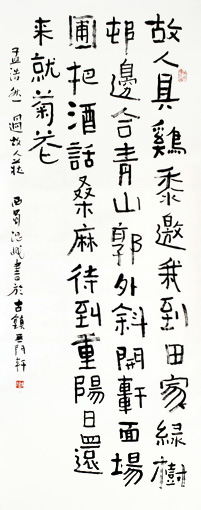 故人具雞黍邀我到田家緑樹
邨邊合青山郭外斜開軒面場
圃把酒話桑麻待到重陽日還
來就菊花
孟浩然過故人莊 西蜀書於古鎮軒